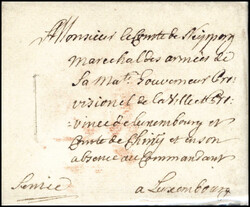 A Monsieur le Comte de Neipperg
Marechal des armées de
Sa Maté Gouverneur Pro
visionel de la Ville et Pro
vince de Luxembourg et
Comté de Chiny et en son
absence au Commandant
Service a Luxembourg